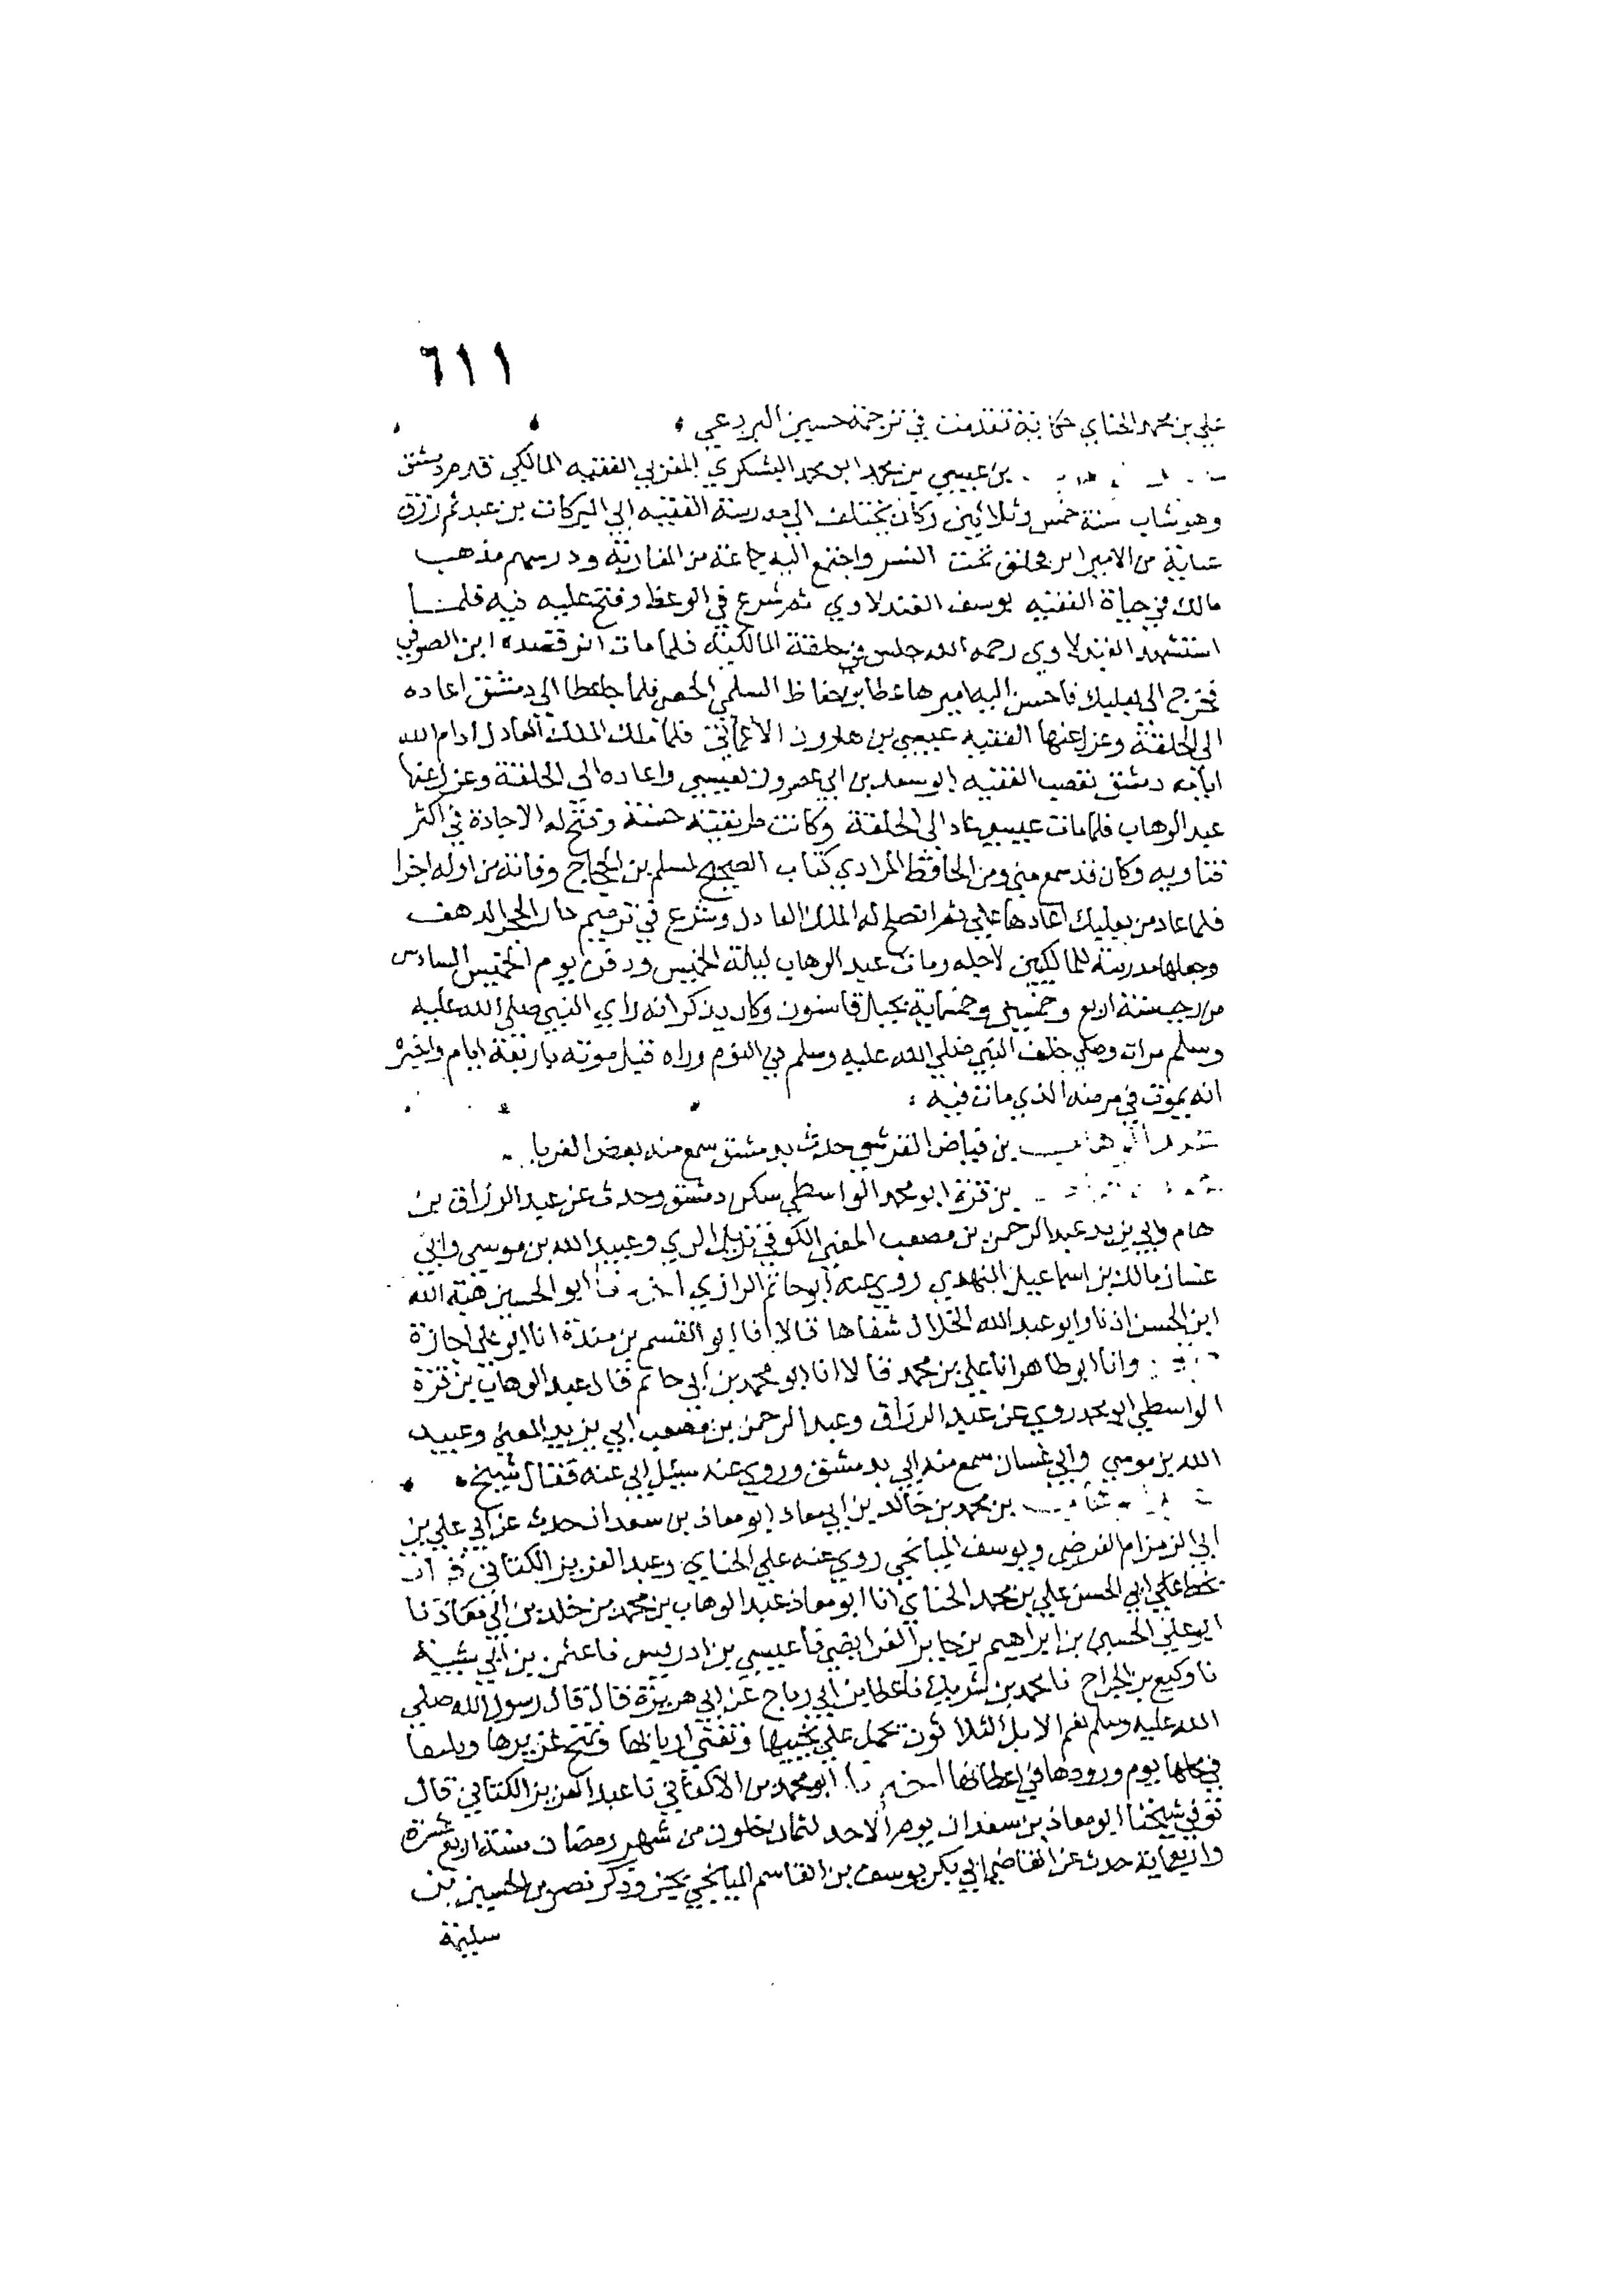 ٦١١
علي بن محمد الحناي حكاية تقدمت في ترجمة حسين البردعي
بن عيسي بن محمد ابو محمد اليشكري المغربي الفقيه المالكي قدم دمشق
وهو شاب سنة خمس وثلاثين وكان يختلف الي مدرسة الفقيه ابي البركات بن عبد ثم رزق
عناية من الامير فحلق تحت النسر واجتمع اليه جماعة من المغاربة ودرسهم مذهب
مالك في حياة الفقيه يوسف الفندلاوي ثم شرع في الوعظ وفتح عليه فيه فلمــا
استشهد الفندلاوي رحمه الله جلس في حلقة المالكية فلما مات انر قصده ابن الصوفي
فخرج الى بعليك فاحسن اليه اميرها عطا بن حفاظ السلمي فلما جا عطا الى دمشق اعاده
الى الحلقة وعزل عنها الفقيه عيسي بن هارون الاغماتي فلما ملك الملك العادل ادام الله
ايامه دمشق تعصب الفقيه ابو سعد بن ابي عصرون لعيسي واعاده الى الحلقة وعزل عنها
عبد الوهاب فلما مات عيسي عاد الى الحلقة وكانت طريقته حسنة وتتجه له الاجادة في اكثر
فتاويه وكان قد سمع مني ومن الحافظ المرادي كتاب الصحيح لمسلم بن الحجاج وفاته من اوله اجزا
فلما عاد من بعليك اعادها علي ثم اتصل له الملك العادل وشرع في ترميم دار الحجر الدهف
وجعلها مدرسة للمالكيين لاجله ومات عبد الوهاب ليلة الخميس ودفن يوم الخميس السادس
من رجب سنة اربع وخمسين وخمسماية بجبل قاسيون وكان يذكر انه راي النبي صلي الله عليه
وسلم مرات وصلي خلف النبي صلي الله عليه وسلم في النوم وراه قبل موته باربعة ايام واخبره
انه يموت في مرضه الذي مات فيه
بن فياض القرشي حدث بدمشق سمع منه بعض الغربا
بن قزة ابو محمد الواسطي سكن دمشق وحدث عن عبد الرزاق بن
همام وابي يزيد عبد الرحمن بن مصعب المعني الكوفي نزيل الري وعبيد الله بن موسي وابي
غسان مالك بن اسماعيل النهدي روي عنه ابو حاتم الرازي ابو الحسين هبة الله
ابن الحسن اذنا وابو عبد الله الخلال شفاها قالا انا ابو القسم بن مندة انا ابو علي اجازة
وانا ابو طاهر انا علي بن محمد قالا انا ابو محمد بن ابي حاتم قال عبد الوهاب بن قزة
الواسطي ابو محمد روي عن عبد الرزاق وعبد الرحمن بن مصعب ابي يزيد المعني وعبيد
الله بن موسي وابي غسان سمع منه ابي بدمشق وروي عنه سئل ابي عنه فقال شيخ
بن محمد بن خالد بن ابي معاذ ابو معاذ بن سعدان حدث عن ابي علي بن
ابي الزمزام الفرضي ويوسف الميانجي روي عنه علي الحناي وعبد العزيز الكتاني
بخط علي ابي الحسن علي بن محمد الحناي انا ابو معاذ عبد الوهاب بن محمد بن خلد بن ابي معاذ نا
ابو علي الحسين بن ابراهيم بن جابر الفرايضي نا عيسي بن ادريس نا عثمن بن ابي شيبة
نا وكيع بن الجراح نا محمد بن شريك نا عطا بن ابي رباح عن ابي هريرة قال قال رسول الله صلي
الله عليه وسلم نعم الابل الثلاثون تحمل علي نجيبها وتمنح غزيرها
يوم ورودها في اعطانها ابو محمد بن الاكفاني نا عبد العزيز الكتاني قال
توفي شيخنا ابو معاذ بن سعدان يوم الاحد لثمان خلون من شهر رمضان سنة اربع عشرة
واربعماية حدث عن القاضي ابي بكر يوسف بن القاسم الميانجي وذكر نصر بن الحسين بن
سليمة